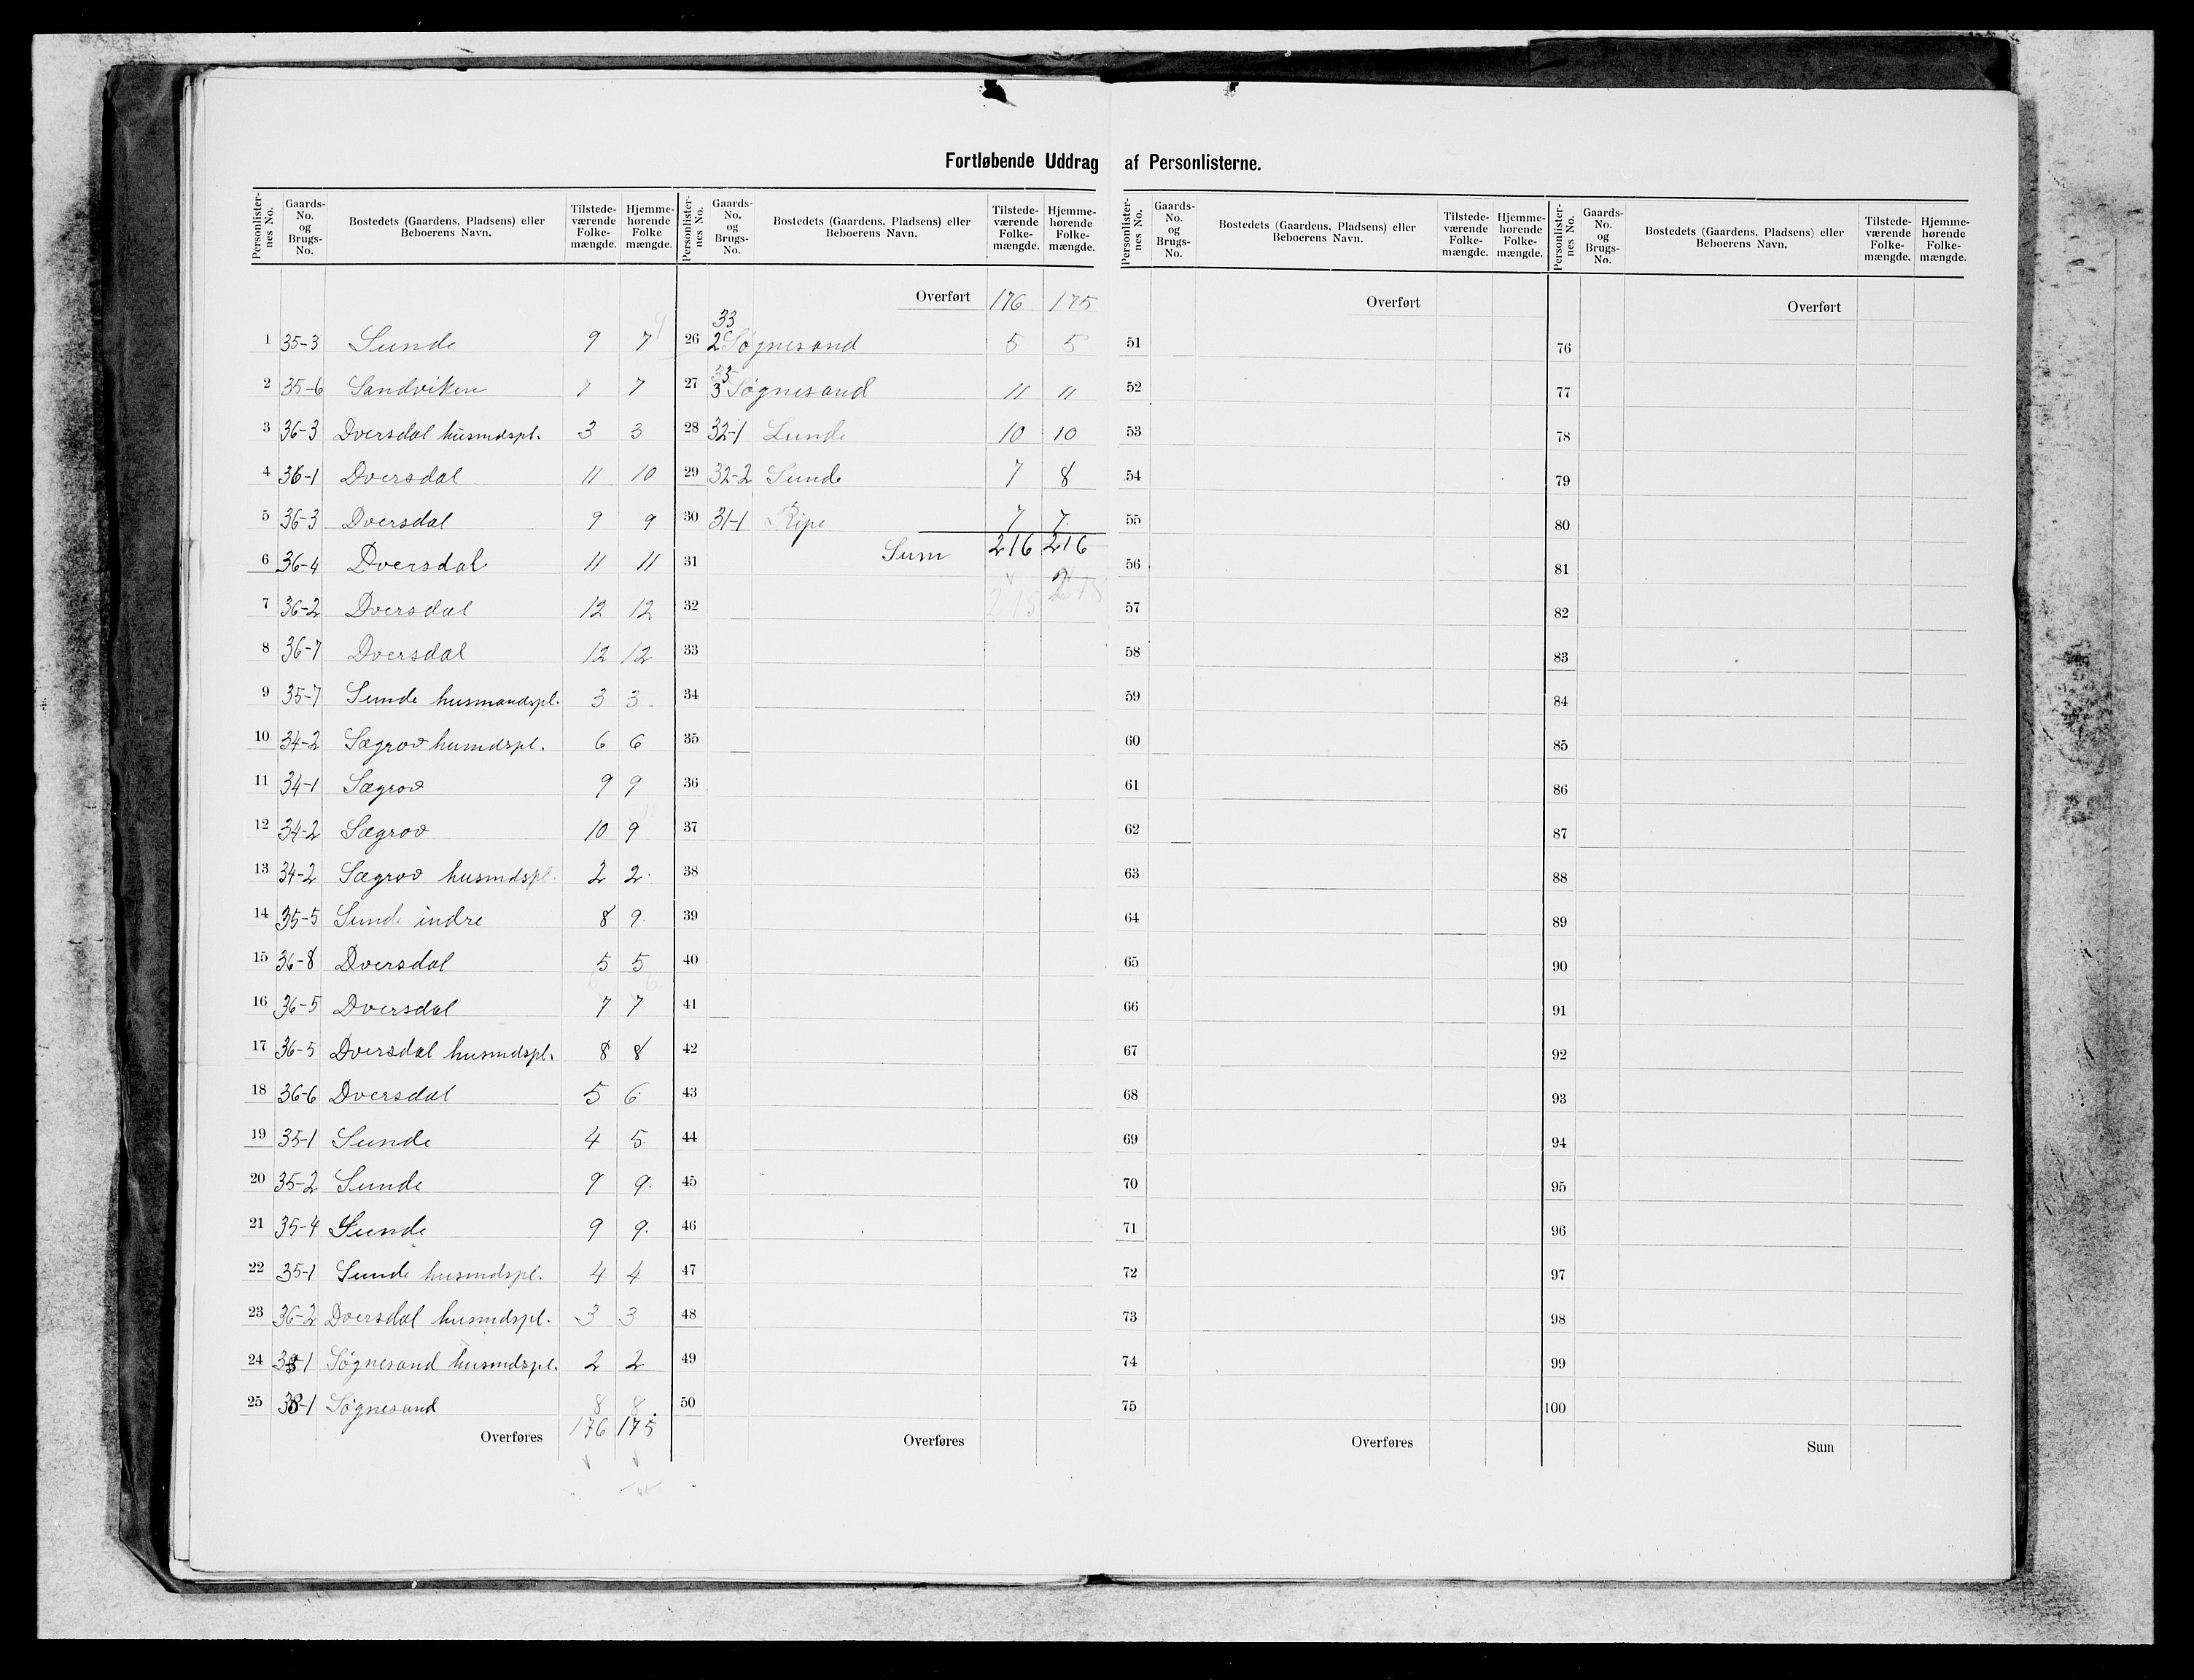 Fortløbende Uddrag af Personlisterne.
Personlister-nes No. Gaards-No. og Brugs-No. Bostedets (Gaardens, Pladsens) eller Beboerens Navn. Tilstede-værende Folke-mængde. Hjemme-hørende Folke mængde.
1 35-3 Sunde 9 7
2 35-6 Sandviken 7 7
3 36-3 Dversdal husmdspl. 3 3
4 36-1 Dversdal 11 10
5 36-3 Dversdal 9 9
6 36-4 Dversdal 11 11
7 36-2 Dversdal 12 12
8 36-7 Dversdal 12 12
9 35-7 Sunde husmandspl. 3 3
10 34-2 Sægrov humdspl. 6 6
11 34-1 Sægrov 9 9
12 34-2 Sægrov 10 9
13 34-2 Sægrov husmdspl. 2 2
14 35-5 Sunde indre 8 9
15 36-8 Dversdal 5 5
16 36-5 Dversdal 7 7
17 36-5 Dversdal husmdspl. 8 8
18 36-6 Dversdal 5 6
19 35-1 Sunde 4 5
20 35-2 Sunde 9 9
21 35-4 Sunde 9 9
22 35-1 Sunde husmdspl. 4 4
23 36-2 Dversdal husmdspl. 3 3
24 33-1 Søgnesand husmdspl. 2 2
25 33-1 Søgnesand 8 8
Overføres 176 175
Personlister-nes No. Gaards-No. og Brugs-No. Bostedets (Gaardens, Pladsens) eller Beboerens Navn. Tilstede-værende Folke-mængde. Hjemme-hørende Folke-mængde.
Overført 176 175
33
26 2 Søgnesand 5 5
33
27 3 Søgnesand 11 11
28 32-1 Lunde 10 10
29 32-2 Sunde 7 8
30 31-1 Ripe 7 7
31 Sum 216 216
32 215 218
33
34
35
36
37
38
39
40
41
42
43
44
45
46
47
48
49
50
Overføres
Personlister-nes No. Gaards-No. og Brugs-No. Bostedets (Gaardens, Pladsens) eller Beboerens Navn. Tilstede-værende Folke-mængde. Hjemme-hørende Folke-mængde.
Overført
51
52
53
54
55
56
57
58
59
60
61
62
63
64
65
66
67
68
69
70
71
72
73
74
75
Overføres
Personlister-nes No. Gaards-No. og Brugs-No. Bostedets (Gaardens, Pladsens) eller Beboerens Navn. Tilstede-værende Folke-mængde. Hjemme-hørende Folke-mængde.
Overført
76
77
78
79
80
81
82
83
84
85
86
87
88
89
90
91
92
93
94
95
96
97
98
99
100
Sum